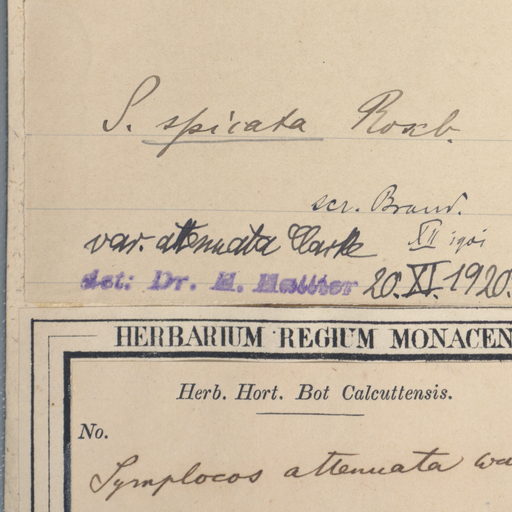 S. spicata Roxb.
scr. Brand.
XII 1901
var. attenuata Clarke
det: Dr. H. Hallier 20.XI.1920.
HERBARIUM REGIUM MONACEN
Herb. Hort. Bot Calcuttensis.
No.
Symplocos attenuata wa